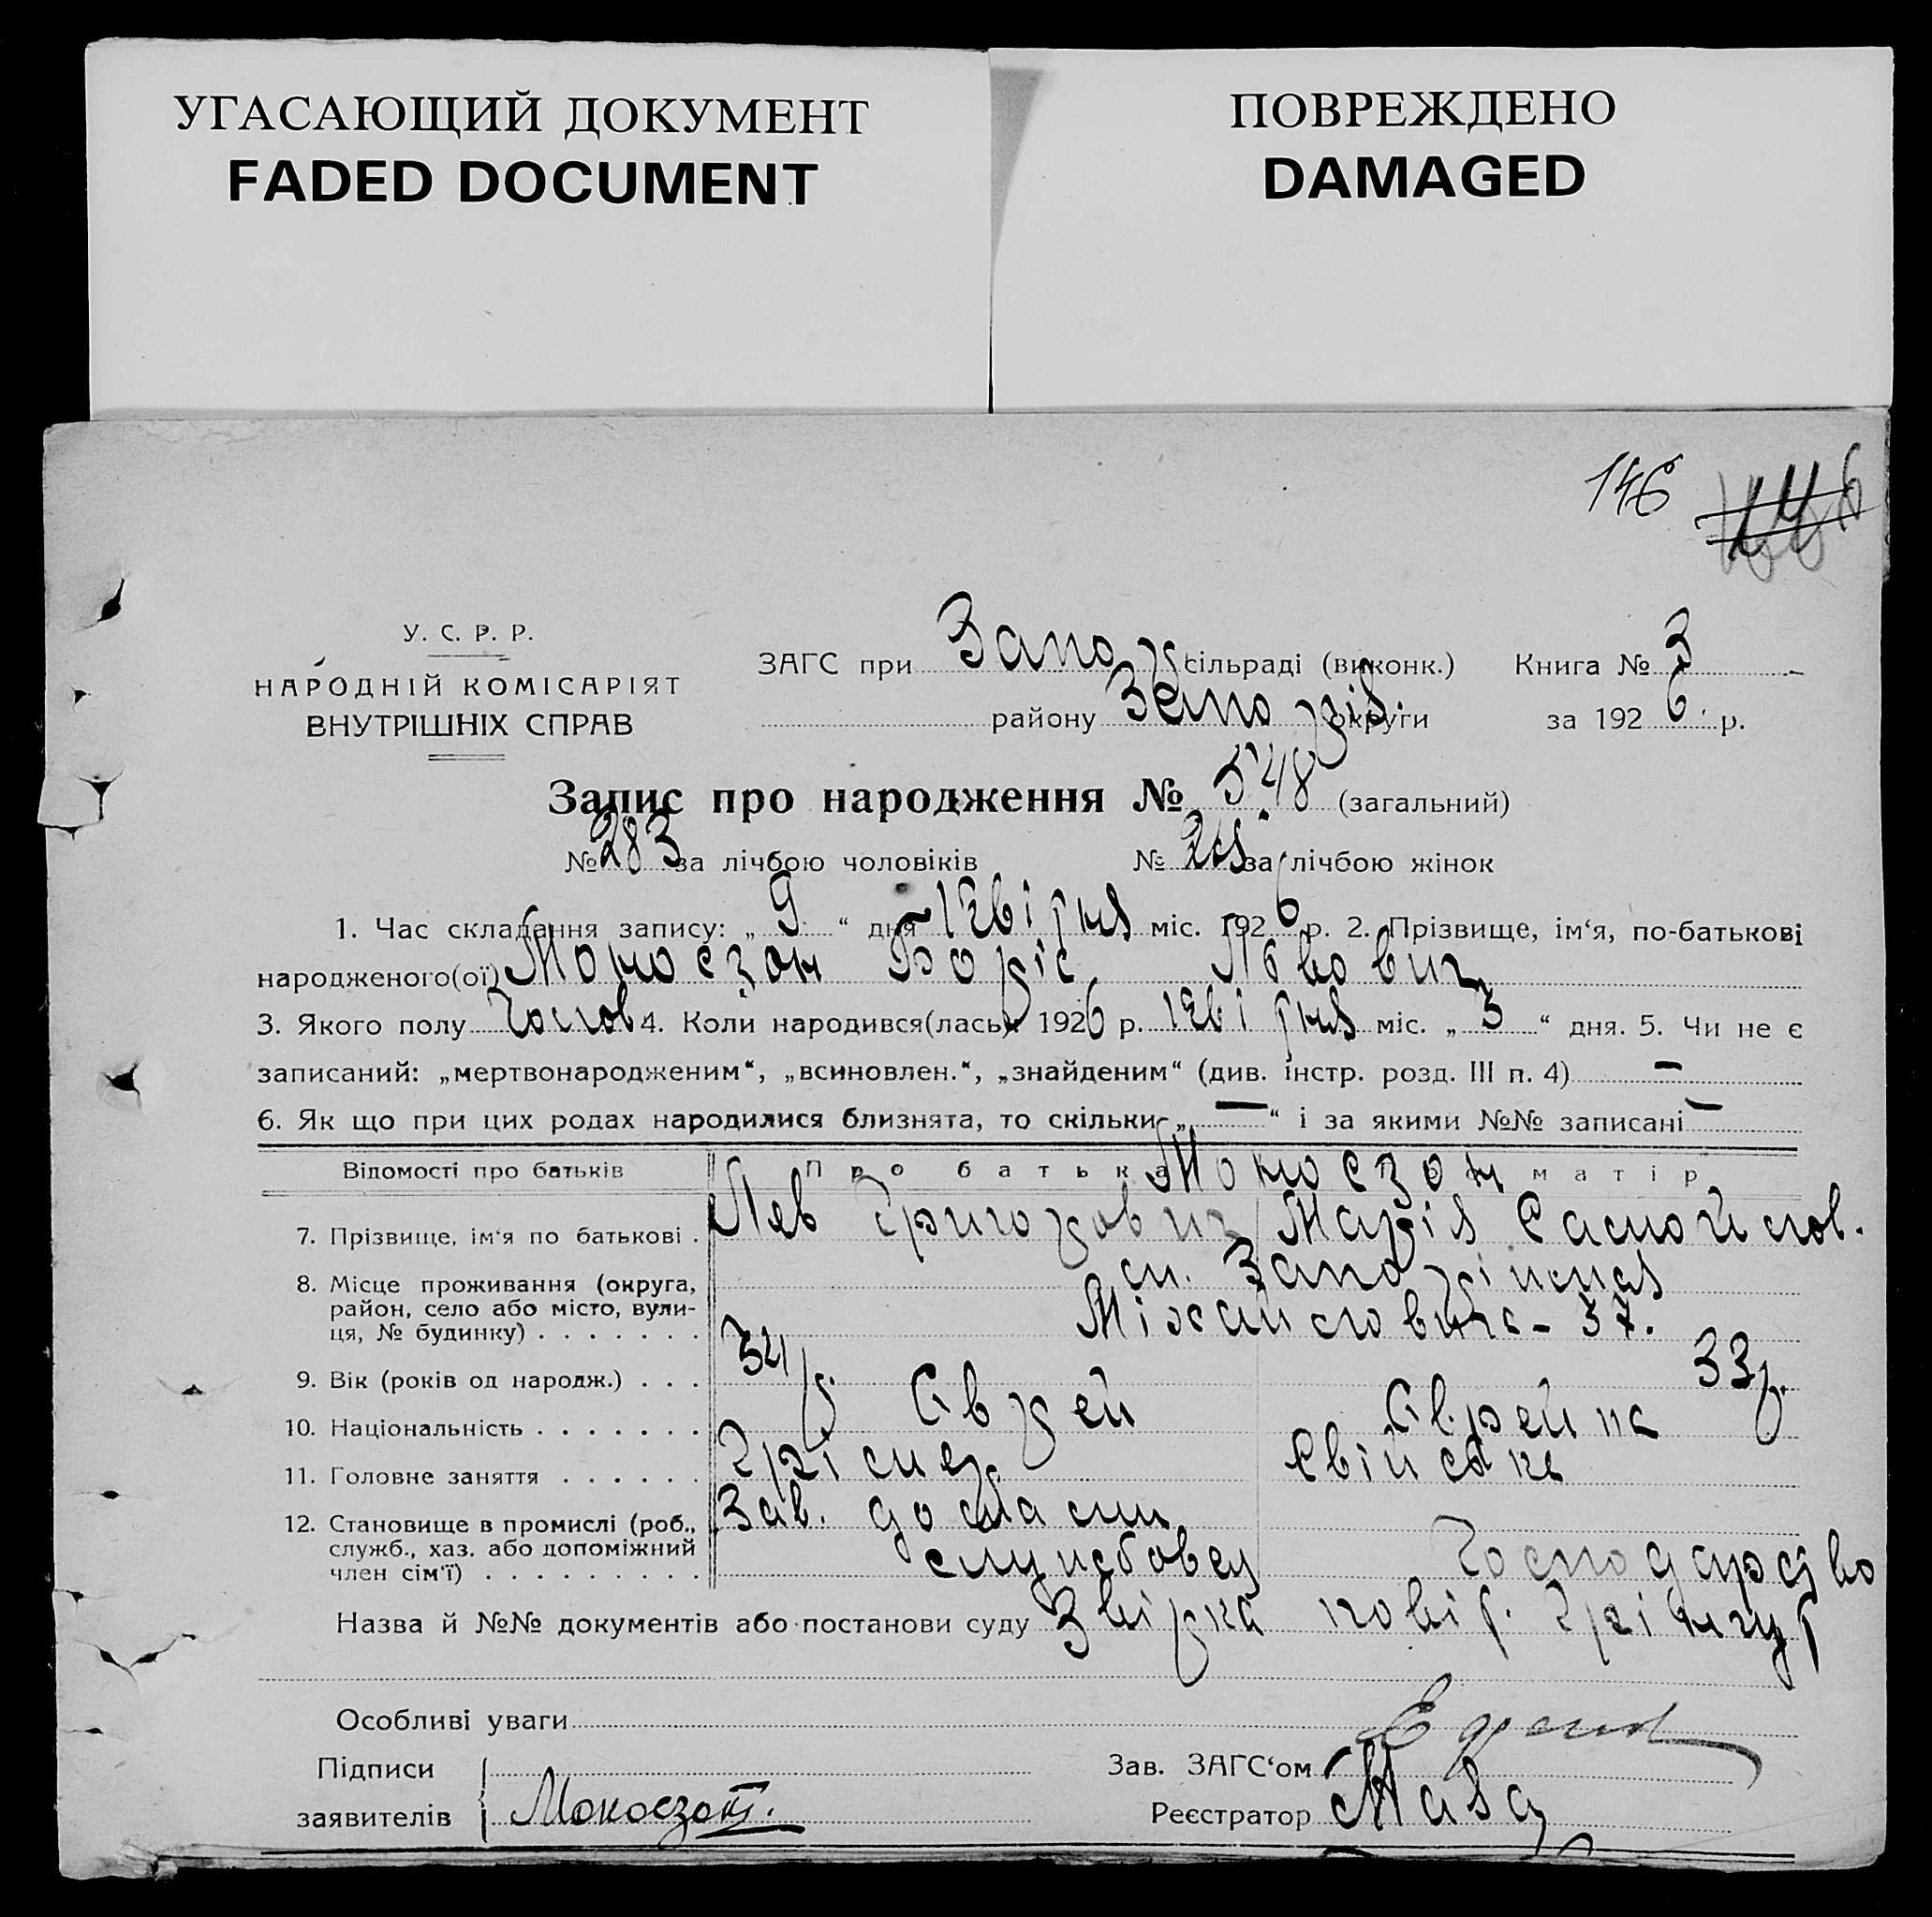 УГАСАЮЩИЙ ДОКУМЕНТ
FADED DOCUMENT
ПОВРЕЖДЕНО
DAMAGED
146
У. С. Р. Р.
НАРОДНІЙ КОМІСАРІЯТ
ВНУТРІШНІХ СПРАВ
ЗАГС при Запор сільраді (виконк.) Книга № 3
району Запоріз. округи за 1926 р.
Запис про народження № 548 (загальний)
№ 283 за лічбою чоловіків № за лічбою жінок
1. Час складання запису: „ 9 “ дня Квітня міс. 1926 р. 2. Прізвище, ім‘я, по-батькові
народженого(ої) Моносзон Боріс Львович
3. Якого полу Чолов 4. Коли народився(лась) 1926 р. Квітня міс. „ 3 “ дня. 5. Чи не є
записаний: „мертвонародженим“, „всиновлен.“, „знайденим“ (див. інстр. розд. III п. 4) —
6. Як що при цих родах народилися близнята, то скільки „ — “ і за якими №№ записані —
Відомості про батьків Про батька Моносзон матір
7. Прізвище, ім‘я по батькові . Лев Григорович Марія
8. Місце проживання (округа, район, село або місто, вулиця, № будинку) . . . . . . . 37.
9. Вік (років од народж.) . . . 34 р. 33 р.
10. Національність . . . . . . . Єврей Єврейка
11. Головне заняття . . . . . .
12. Становище в промислі (роб., служб., хаз. або допоміжний член сім‘ї) . . . . . . . . . Зав. службовец Господарство
Назва й №№ документів або постанови суду
Особливі уваги
Підписи заявителів Моносзон.
Зав. ЗАГС‘ом
Реєстратор